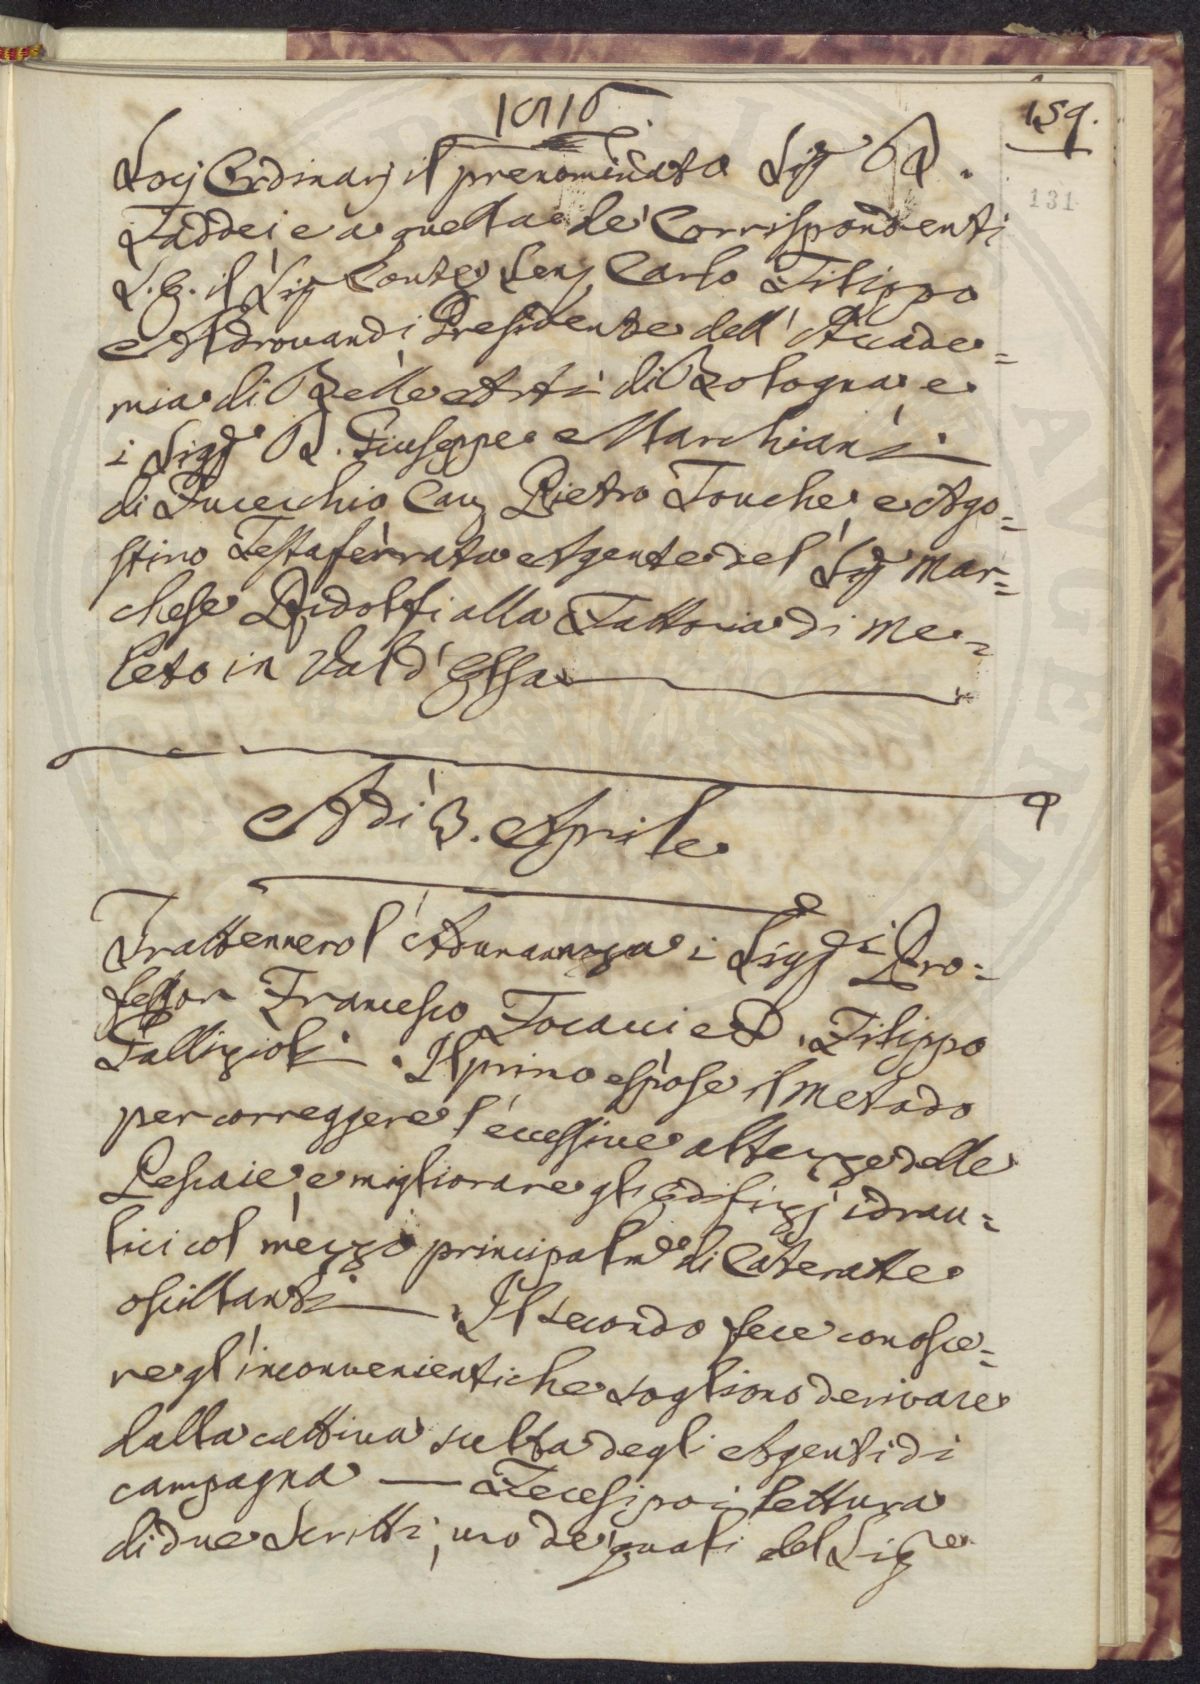 1816
159.
131
Socj Ordinarj il prenominato Sigr Dr.
Taddei e a quella de' Corrispondenti
S. E. il Sigr Conte Senr Carlo Filippo
Aldrovandi Presidente dell' Accade=
mia di Belle Arti di Bologna e
i Sigg.i D. Giuseppe Marchiani
di Fucecchio Cavr Pietro Touche e Ago=
stino Testaferrata Agente del Sigr Mar=
chese Ridolfi alla Fattoria di Me=
leto in Val d' Elsa
Adì 3. Aprile
Trattennero l' Adunanza i Sigg.i Pro=
fessor Francesco Focacci e D. Filippo
Gallizioli. Il primo espose il metodo
per correggere l' eccessive altezze delle
Pescaie, e migliorare gli Edifizj idrau=
lici col mezzo principalme di Cateratte
oscillanti. Il secondo fece conosce=
re gl' inconvenienti che sogliono derivare
dalla cattiva scelta degli Agenti di
campagna — Fecesi poi lettura
di due Scritti, uno de' quali del Sigre